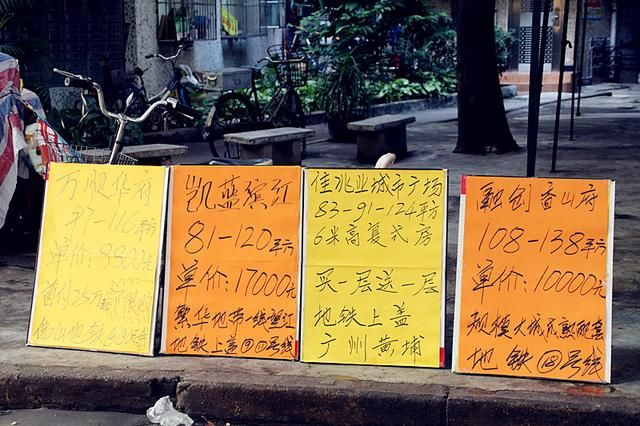 万顺华府
97-116平方
单价:8800元
凯蓝滨江
81-120平方
单价:17000元
繁华地带一线望江
地铁上盖
号线
佳兆业城市广场
83-91-124平方
6米高复式房
买一层送一层
地铁上盖
广州黄埔
融创香山府
108-138平方
单价:10000元
规模大城成熟配套
地铁⑱号线